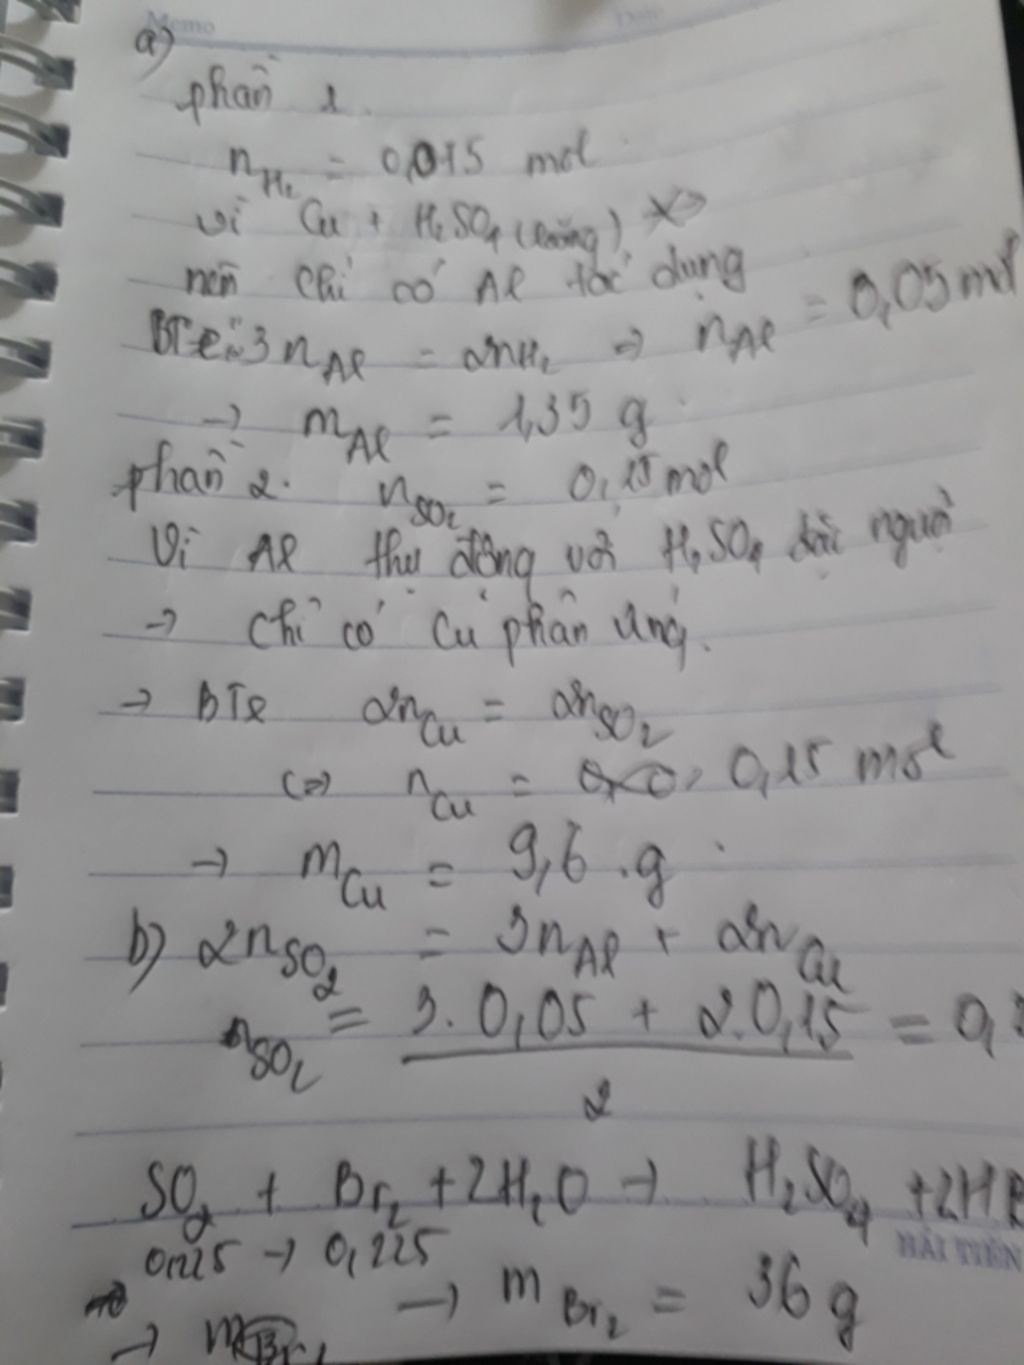 Memo Date
a)
phần 1.
nH₂ = 0,075 mol
vì Cu + H₂SO₄ (loãng)
nên chỉ có Al tác dụng
BTe: 3nAl = 2nH₂ → nAl = 0,05 mol
→ mAl = 1,35 g
phần 2. nSO₂ = 0,15 mol
Vì Al thụ động với H₂SO₄ đặc nguội
→ chỉ có Cu phản ứng.
→ BTe 2nCu = 2nSO₂
(=) nCu = 0,15 mol
→ mCu = 9,6 g
b) 2nSO₂ = 3nAl + 2nCu
nSO₂ = 3.0,05 + 2.0,15 = 0,
2
SO₂ + Br₂ + 2H₂O → H₂SO₄ + 2HB
HẢI TIẾN
0,225 → 0,225
→ mBr₂ = 36 g
→